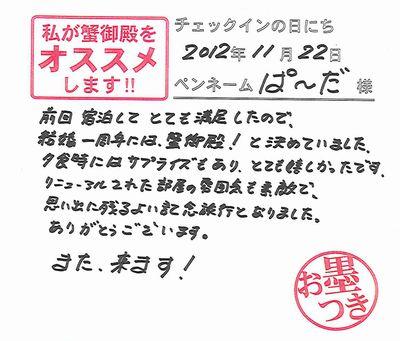 私が蟹御殿を
オススメ
します!!
チェックインの日にち
2012年 11月 22日
ペンネーム ぱ〜だ 様
前回 宿泊して とても満足したので、
結婚一周年には、蟹御殿！と決めていました。
夕食時にはサプライズもあり、とても嬉しかったです。
リニューアルされた部屋の雰囲気も素敵で、
思い出に残るよい記念旅行となりました。
ありがとうございます。
また、来ます！
お墨つき